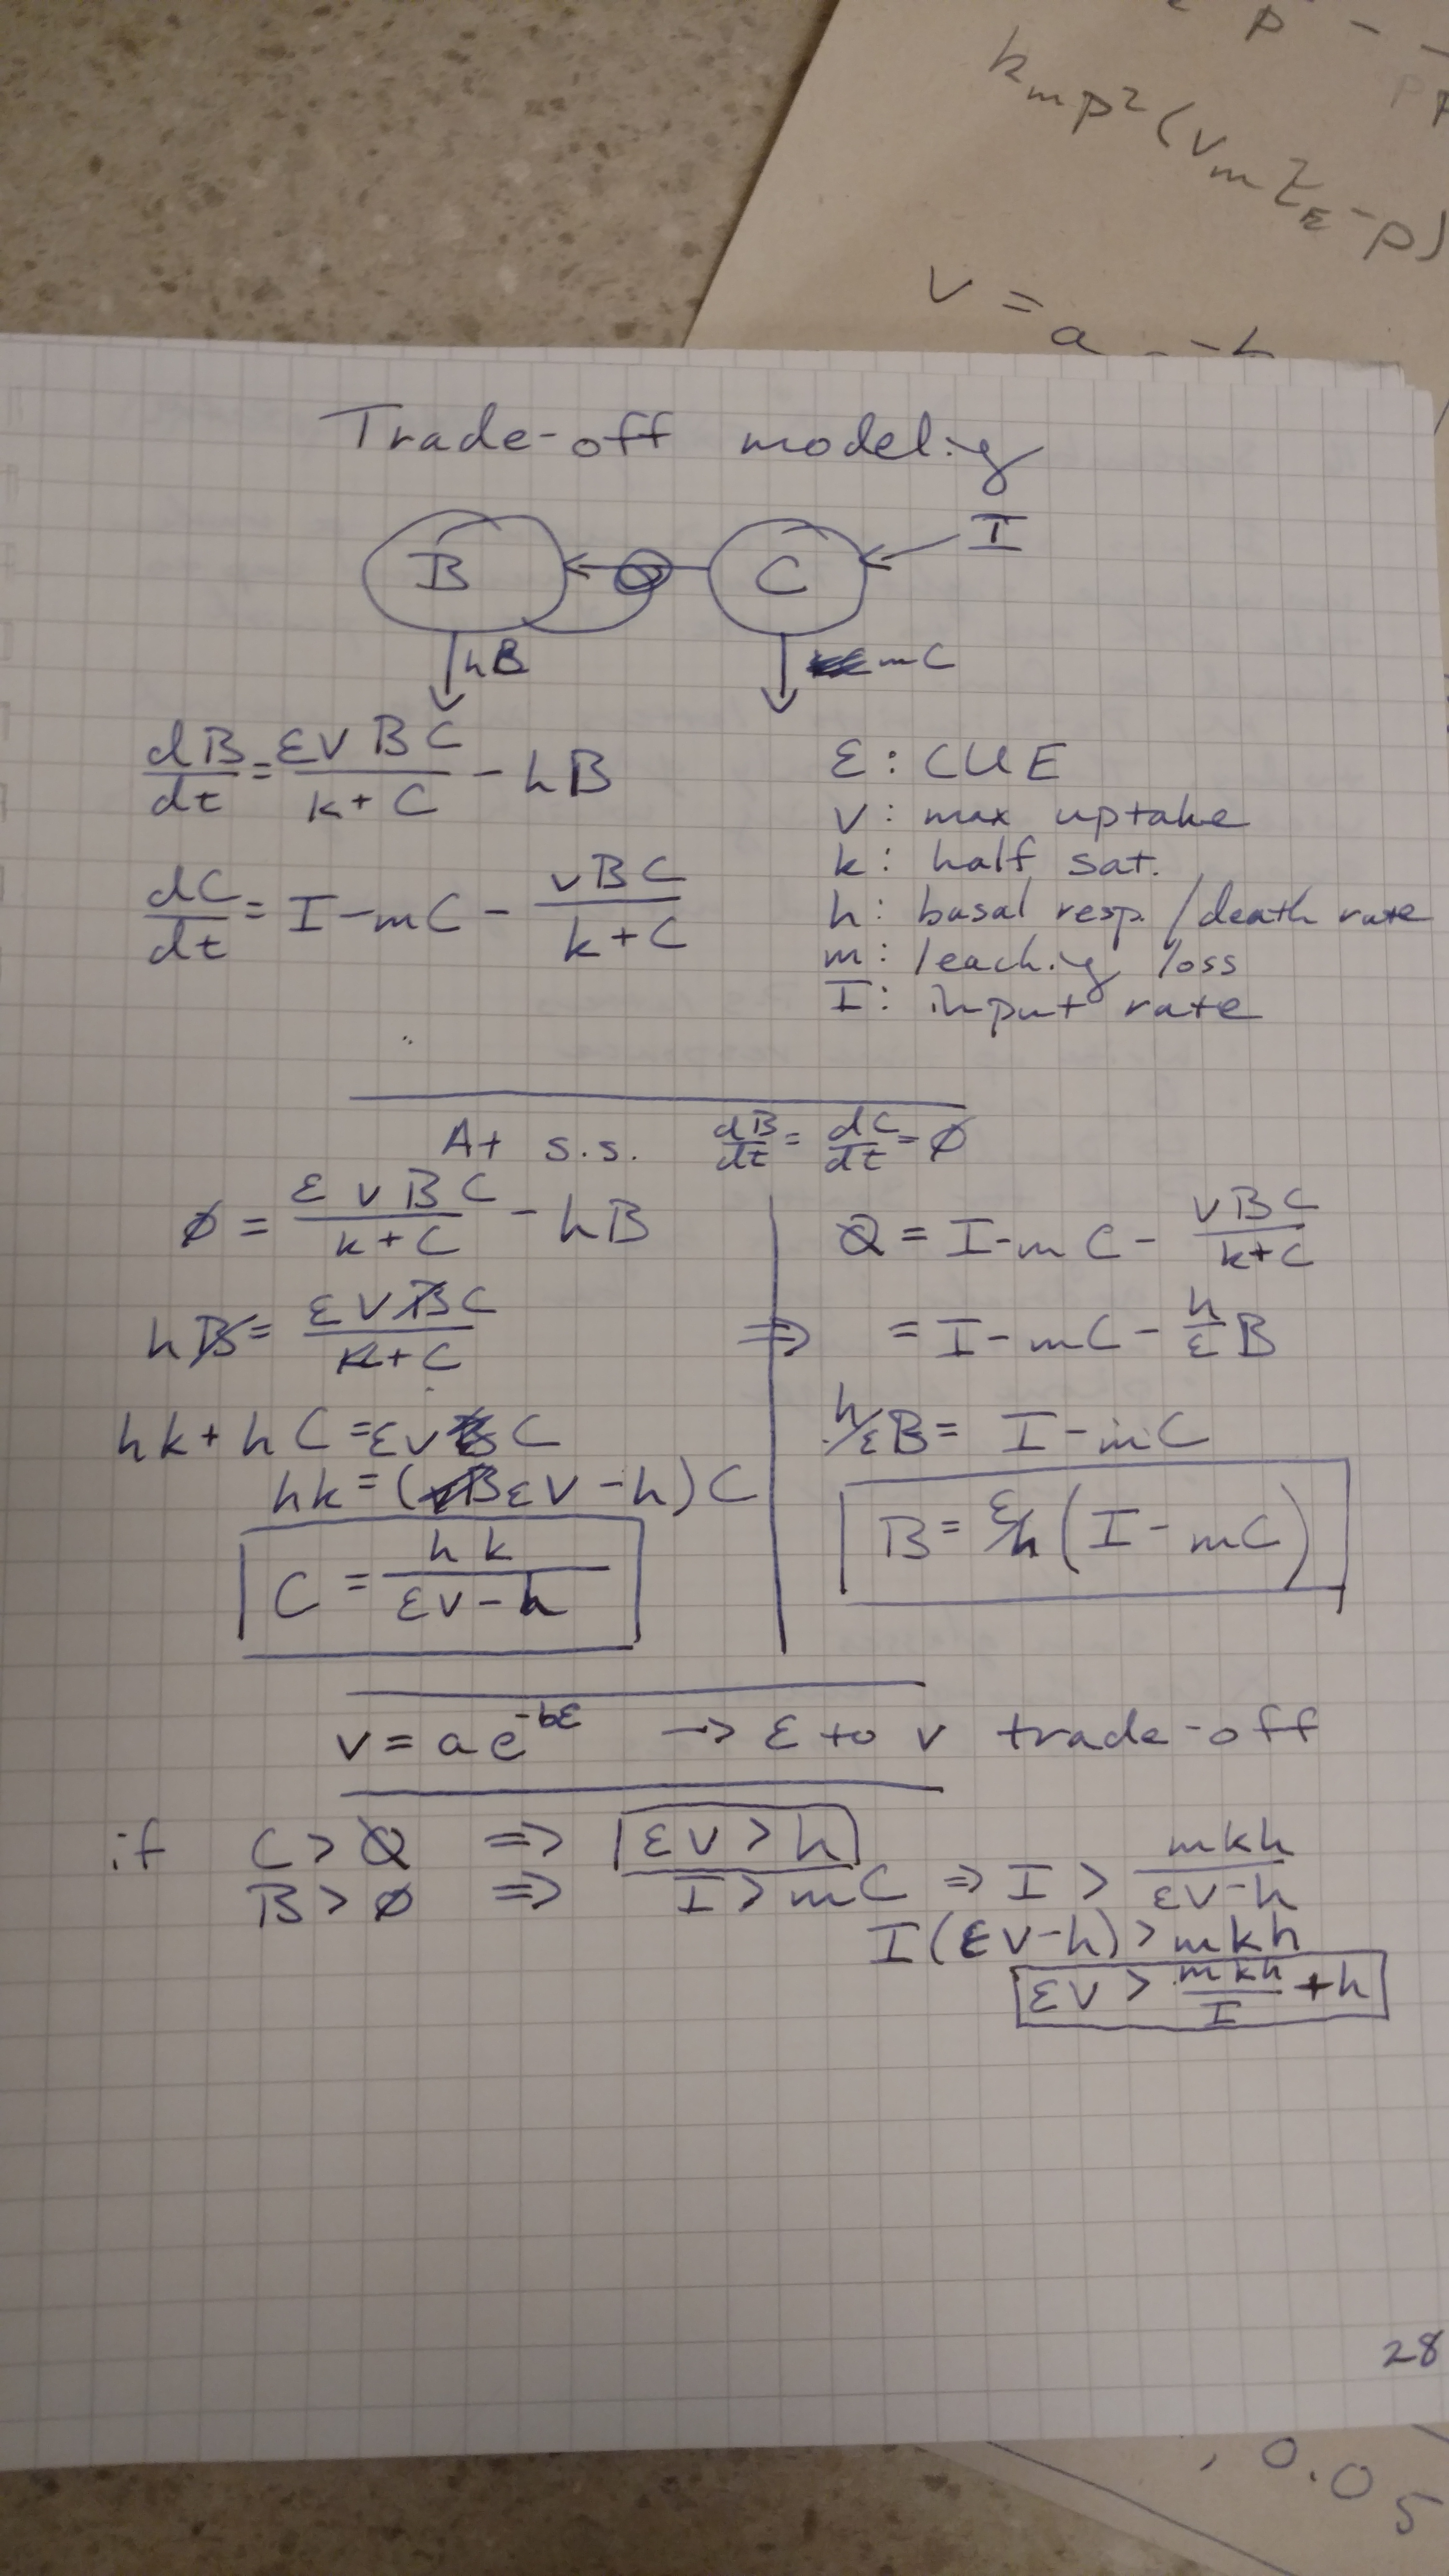 k_m p² (v_m z_ε - p)
v =
a
Trade-off modeling
B C I
hB mC
dB/dt = εvBC/(k+C) - hB
dC/dt = I - mC - vBC/(k+C)
ε: CUE
v: max uptake
k: half sat.
h: basal resp./death rate
m: leaching loss
I: input rate
At s.s. dB/dt = dC/dt = ∅
∅ = εvBC/(k+C) - hB
hB = εvBC/(k+C)
hk + hC = εvC
hk = (εv - h)C
C = hk/(εv - h)
∅ = I - mC - vBC/(k+C)
⇒ = I - mC - h/ε B
h/ε B = I - mC
B = ε/h (I - mC)
v = ae^(-bε) → ε to v trade-off
if C > ∅ ⇒ εv > h
B > ∅ ⇒ I > mC ⇒ I > mkh/(εv - h)
I(εv - h) > mkh
εv > mkh/I + h
28
, 0.05